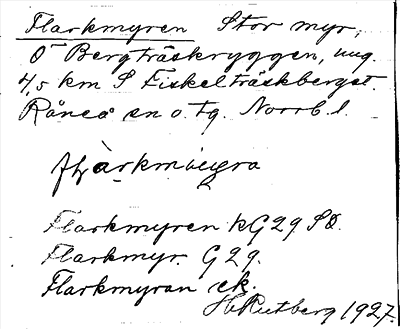 Flarkmyren Stor myr,
O Bergträskryggen, ung.
4,5 km S Fiskelträskberget.
Råneå sn o. tg. Norrb. l.
Flarkmyren kG29 SO.
Flarkmyr. G29.
Flarkmyran ek.
Rutberg 1927.